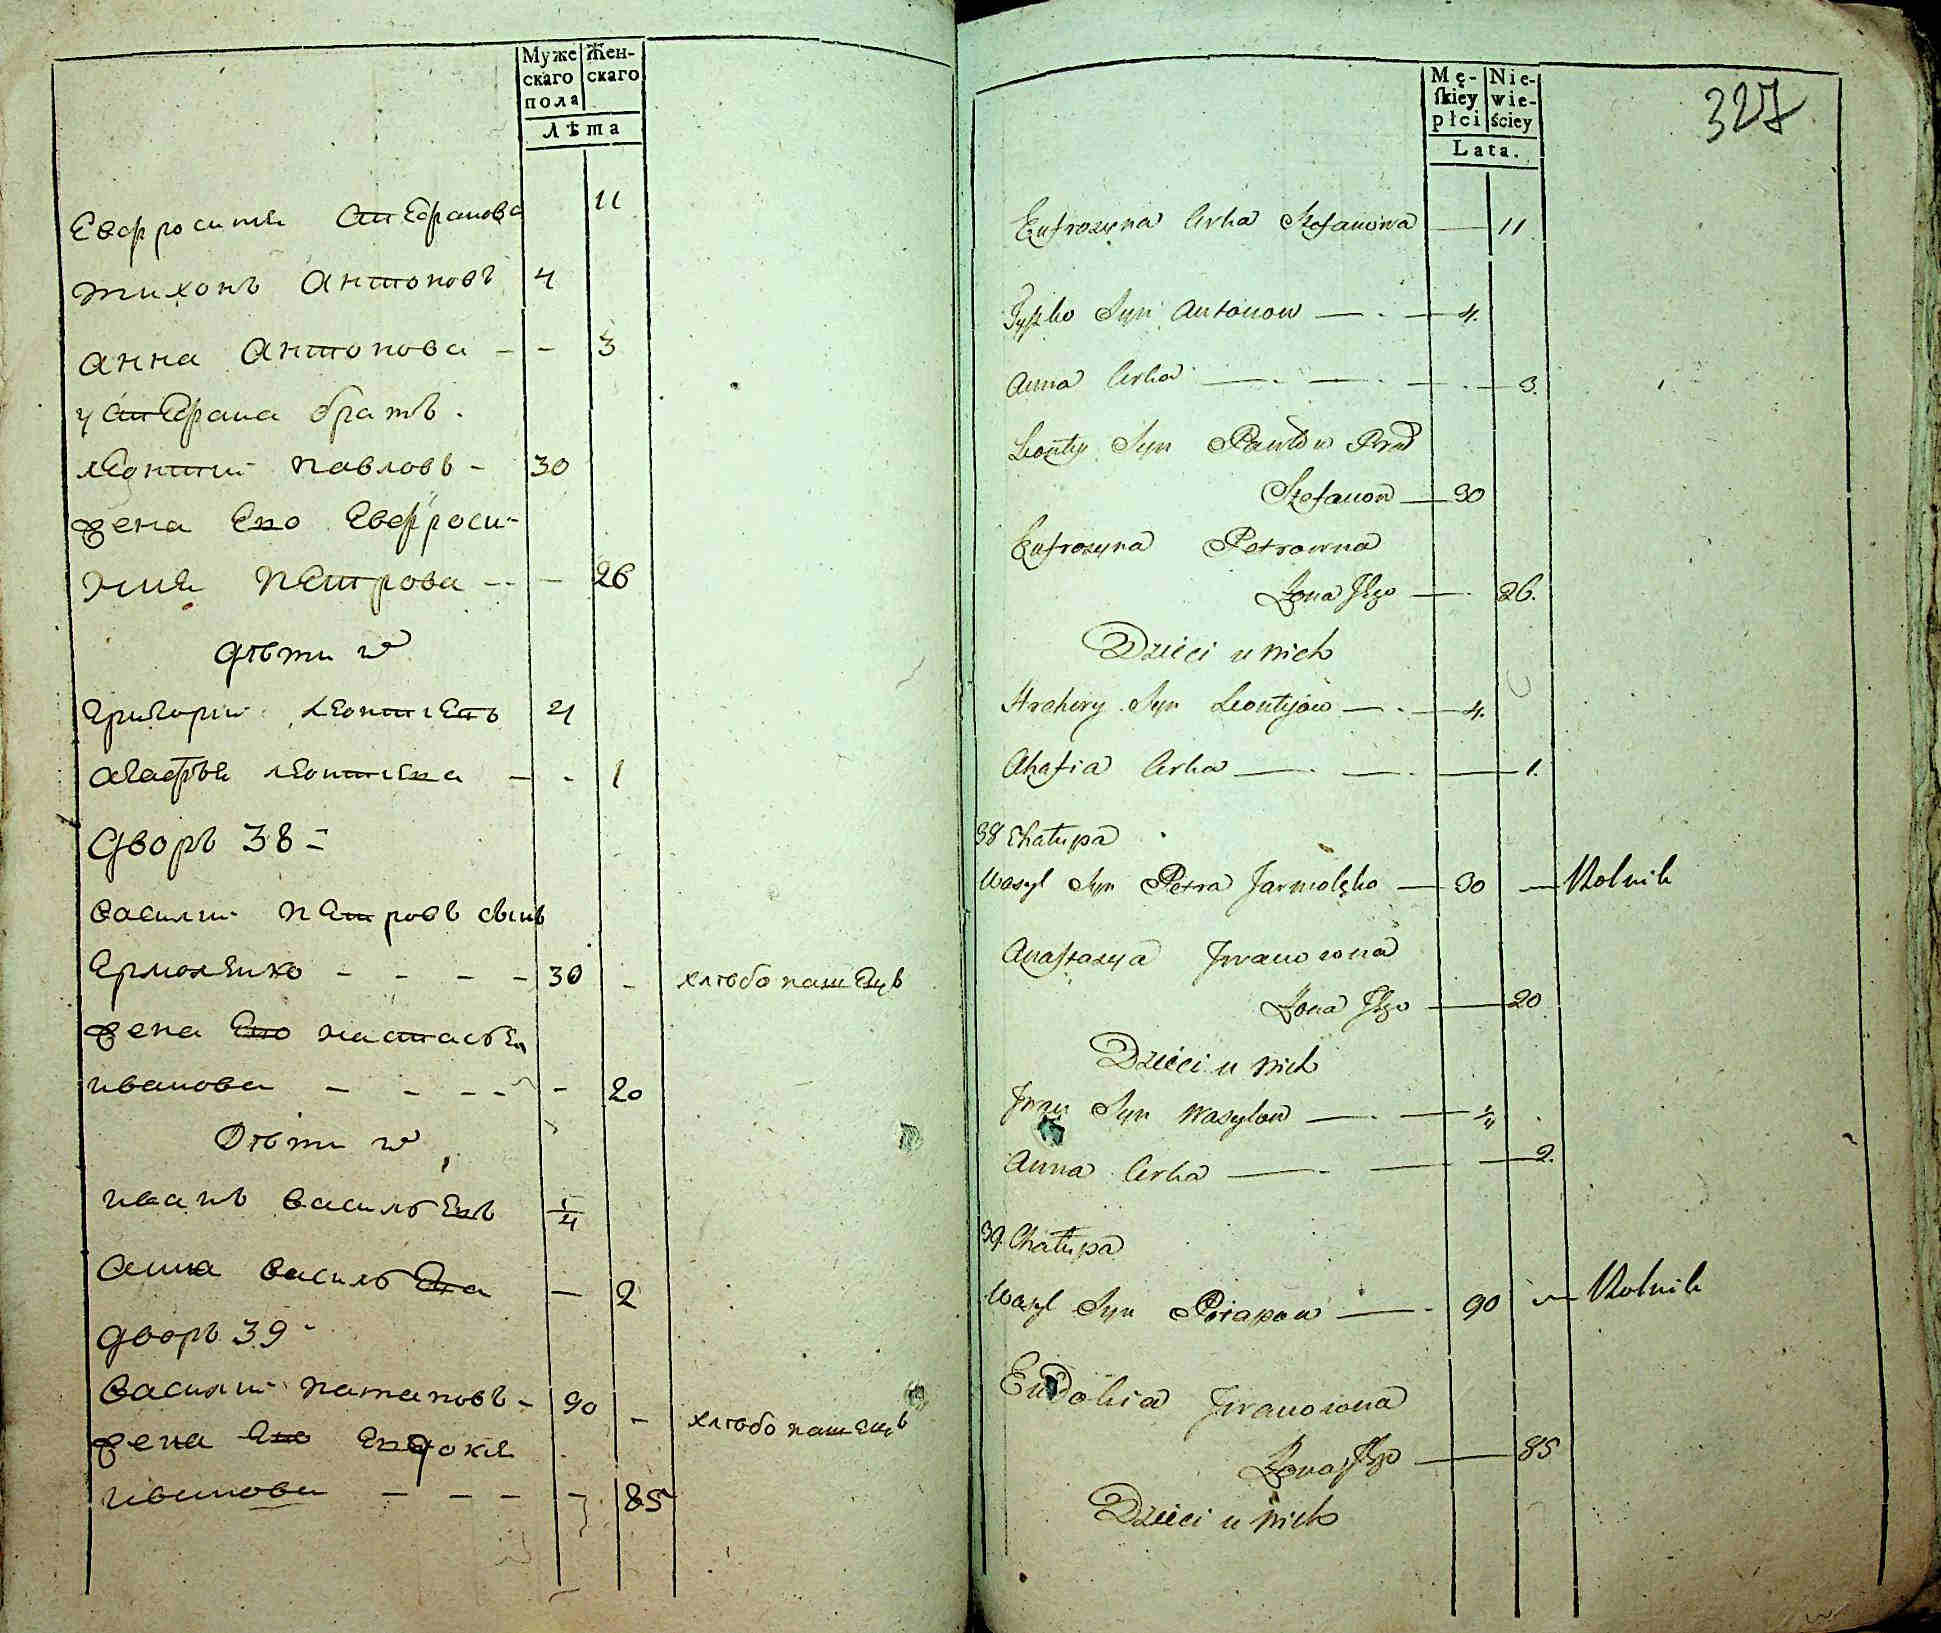 Муже Жен-
скаго скаго
пола
лѣта
Евфросинія Стефанова 11
тихонъ Антоновъ 4
анна Антонова - - 3
у Стефана братъ.
леонтий павловъ - 30
жена Его Евфроси-
ния петрова -- - 26
дѣти ихъ
григорий леонтіевъ 4
агафія леонтіева - - 1
дворъ 38 -
василий петровъ сынъ
Ермоленко - - - - 30 - хлѣбопашецъ
жена Его настасія
иванова - - - - - 20
Дѣти ихъ
иванъ васильевъ 1/4
анна васильева - 2
дворъ 39 -
василий патаповъ - 90 - хлѣбопашецъ
жена Его Евдокія
иванова - - - - 85
327
Mę- Nie-
ſkiey wie-
płci ściey
Lata.
Eufrozyna Crka Stefanowa — 11
Tyszko Syn Antonow — . — 4.
Anna Crka — . — . — . — 3.
Leonty Syn Pawłow Brad
Stefanow — 30
Eufrozyna Petrowna
Żona Jego — 26.
Dzieci u nich
Hrehory Syn Leontyiow — . — 4.
Ahafia Crka — . — . — 1.
38 Chałupa
Wasyl Syn Petra Jarmolenko — 30 — Rolnik
Anastazya Jwanowna
Żona Jego — 20
Dzieci u nich
Jwan Syn Wasylow — . — 1/4
Anna Crka — . — — 2.
39. Chałupa
Wasyl Syn Potapow — . 90 — Rolnik
Eudokia Jwanowna
Żona Jego — 85
Dzieci u nich